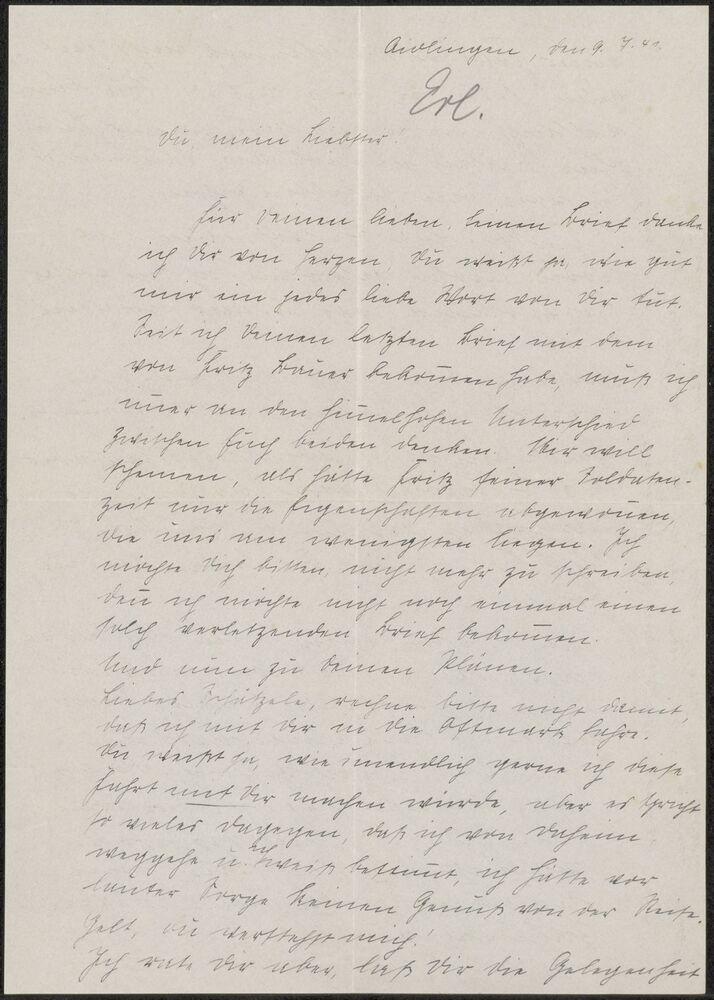 Aidlingen, den 9. 7. 41.
Erl.
Du, mein Liebster!
Für Deinen lieben, feinen Brief danke
ich Dir von Herzen, Du weißt ja, wie gut
mir ein jedes liebe Wort von Dir tut.
Seit ich Deinen letzten Brief mit dem
von Fritz Bauer bekom̅en habe, muß ich
im̅er an den him̅elhohen Unterschied
zwischen Euch beiden denken. Mir will
scheinen, als hätte Fritz seiner Soldaten-
zeit nur die Eigenschaften abgewon̅en,
die uns am wenigsten liegen. Ich
möchte Dich bitten, nicht mehr zu schreiben,
den̅ ich möchte nicht noch einmal einen
solch verletzenden Brief bekom̅en.
Und nun zu Deinen Plänen.
Liebes Schätzele, rechne bitte nicht damit,
daß ich mit Dir in die Ostmark fahre.
Du weißt ja, wie unendlich gerne ich diese
Fahrt mit Dir machen würde, aber es spricht
so vieles dagegen, daß ich von daheim
weggehe u. ich weiß bestim̅t, ich hätte vor
lauter Sorge keinen Genuß von der Reise.
Gelt, Du verstehst mich!
Ich rate Dir aber, laß Dir die Gelegenheit